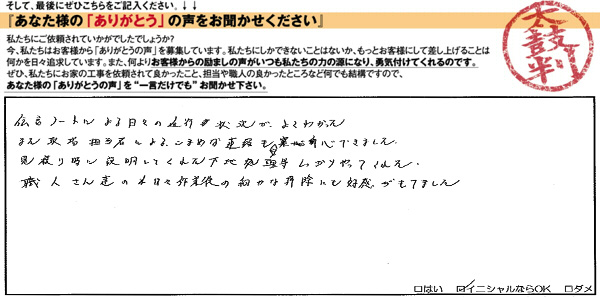 そして、最後にぜひこちらをご記入ください。↓↓
『あなた様の「ありがとう」の声をお聞かせください』
私たちにご依頼されていかがでしたでしょうか?
今、私たちはお客様から「ありがとうの声」を募集しています。私たちにしかできないことはないか、もっとお客様にして差し上げることは
何かを日々追求しています。また、何よりお客様からの励ましの声がいつも私たちの力の源になり、勇気付けてくれるのです。
ぜひ、私たちにお家の工事を依頼されて良かったこと、担当や職人の良かったところなど何でも結構ですので、
あなた様の「ありがとうの声」を“一言だけでも”お聞かせ下さい。
太鼓判
伝言ノートによる日々の進行状況が、よくわかった
また現場担当者によるこまめな連絡も安心できました。
見積り時に説明してくれた下地処理もしっかりやってくれた.
職人さん達の日々作業後の細かな掃除にも好感がもてました
□はい ☑イニシャルならOK □ダメ